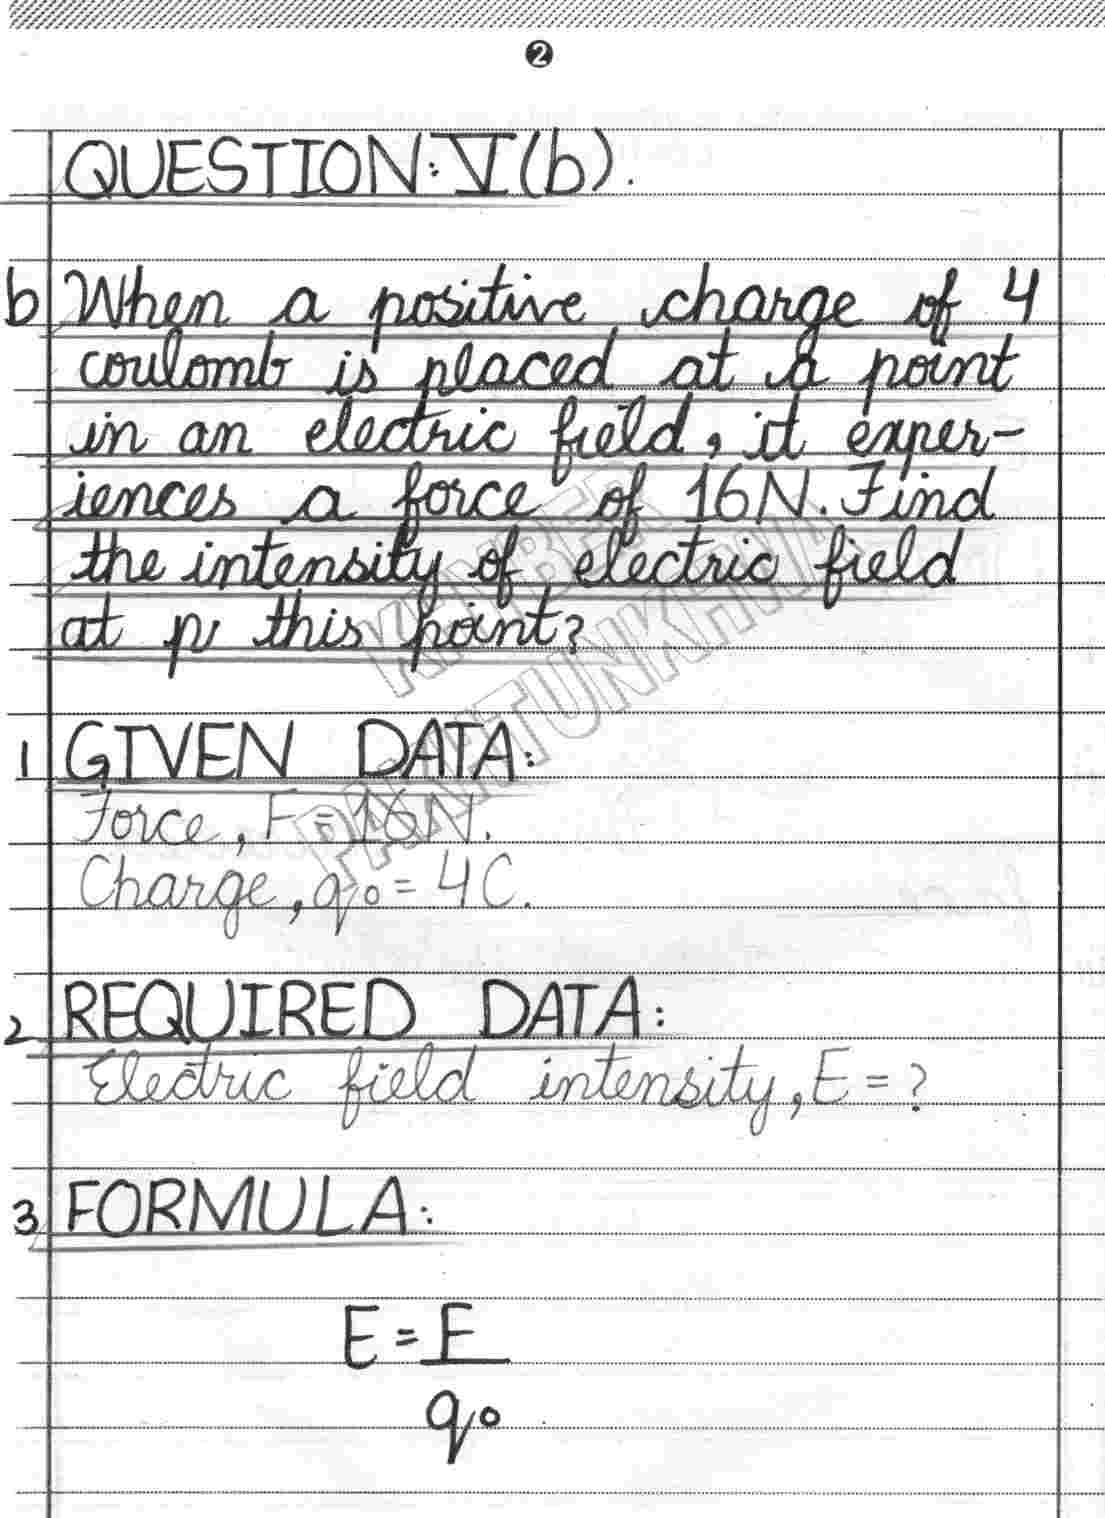 2
QUESTION: V(b).
b When a positive charge of 4
coulomb is placed at a point
in an electric field, it exper-
iences a force of 16N. Find
the intensity of electric field
at p this point?
KHYBER
PAKHTUNKHWA
1 GIVEN DATA:
Force, F = 16N.
Charge, q₀ = 4C.
2 REQUIRED DATA:
Electric field intensity, E = ?
3 FORMULA:
E = F
q₀